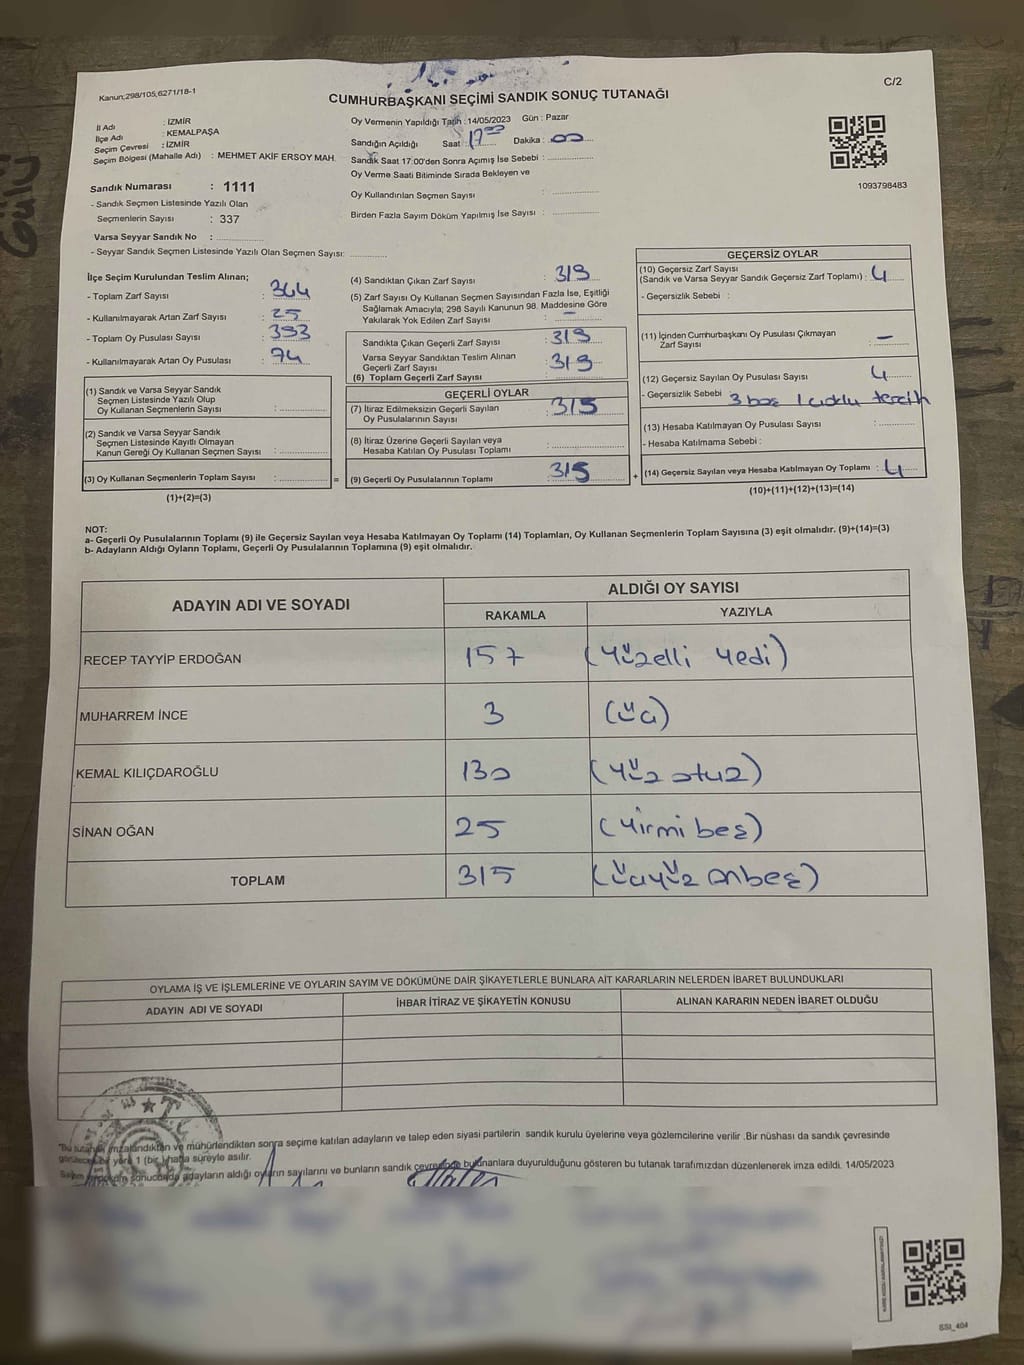 Kanun;298/105,6271/18-1
C/2
CUMHURBAŞKANI SEÇİMİ SANDIK SONUÇ TUTANAĞI
İl Adı : İZMİR
İlçe Adı : KEMALPAŞA
Seçim Çevresi : İZMİR
Seçim Bölgesi (Mahalle Adı) : MEHMET AKİF ERSOY MAH.
Oy Vermenin Yapıldığı Tarih : 14/05/2023 Gün : Pazar
Sandığın Açıldığı Saat : 17:00 Dakika : 00
Sandık Saat 17:00'den Sonra Açımış İse Sebebi :
Oy Verme Saati Bitiminde Sırada Bekleyen ve
Oy Kullandırılan Seçmen Sayısı :
Birden Fazla Sayım Döküm Yapılmış İse Sayısı :
1093798483
Sandık Numarası : 1111
- Sandık Seçmen Listesinde Yazılı Olan
Seçmenlerin Sayısı : 337
Varsa Seyyar Sandık No :
- Seyyar Sandık Seçmen Listesinde Yazılı Olan Seçmen Sayısı:
İlçe Seçim Kurulundan Teslim Alınan;
- Toplam Zarf Sayısı : 344
- Kullanılmayarak Artan Zarf Sayısı : 25
- Toplam Oy Pusulası Sayısı : 393
- Kullanılmayarak Artan Oy Pusulası : 74
(1) Sandık ve Varsa Seyyar Sandık
Seçmen Listesinde Yazılı Olup
Oy Kullanan Seçmenlerin Sayısı :
(2) Sandık ve Varsa Seyyar Sandık
Seçmen Listesinde Kayıtlı Olmayan
Kanun Gereği Oy Kullanan Seçmen Sayısı :
(3) Oy Kullanan Seçmenlerin Toplam Sayısı :
(1)+(2)=(3)
=
(4) Sandıktan Çıkan Zarf Sayısı : 319
(5) Zarf Sayısı Oy Kullanan Seçmen Sayısından Fazla İse, Eşitliği
Sağlamak Amacıyla; 298 Sayılı Kanunun 98. Maddesine Göre
Yakılarak Yok Edilen Zarf Sayısı : –
Sandıkta Çıkan Geçerli Zarf Sayısı : 319
Varsa Seyyar Sandıktan Teslim Alınan
Geçerli Zarf Sayısı : 319
(6) Toplam Geçerli Zarf Sayısı :
GEÇERLİ OYLAR
(7) İtiraz Edilmeksizin Geçerli Sayılan
Oy Pusulalarının Sayısı : 315
(8) İtiraz Üzerine Geçerli Sayılan veya
Hesaba Katılan Oy Pusulası Toplamı :
(9) Geçerli Oy Pusulalarının Toplamı : 315
+
GEÇERSİZ OYLAR
(10) Geçersiz Zarf Sayısı
(Sandık ve Varsa Seyyar Sandık Geçersiz Zarf Toplamı) : 4
- Geçersizlik Sebebi :
(11) İçinden Cumhurbaşkanı Oy Pusulası Çıkmayan
Zarf Sayısı : –
(12) Geçersiz Sayılan Oy Pusulası Sayısı : 4
- Geçersizlik Sebebi 3 boş 1 çoklu tercih
(13) Hesaba Katılmayan Oy Pusulası Sayısı :
- Hesaba Katılmama Sebebi :
(14) Geçersiz Sayılan veya Hesaba Katılmayan Oy Toplamı : 4
(10)+(11)+(12)+(13)=(14)
NOT:
a- Geçerli Oy Pusulalarının Toplamı (9) ile Geçersiz Sayılan veya Hesaba Katılmayan Oy Toplamı (14) Toplamları, Oy Kullanan Seçmenlerin Toplam Sayısına (3) eşit olmalıdır. (9)+(14)=(3)
b- Adayların Aldığı Oyların Toplamı, Geçerli Oy Pusulalarının Toplamına (9) eşit olmalıdır.
ADAYIN ADI VE SOYADI
ALDIĞI OY SAYISI
RAKAMLA YAZIYLA
RECEP TAYYİP ERDOĞAN 157 (Yüzelli yedi)
MUHARREM İNCE 3 (üç)
KEMAL KILIÇDAROĞLU 130 (Yüz otuz)
SİNAN OĞAN 25 (Yirmi beş)
TOPLAM 315 (Üçyüz onbeş)
OYLAMA İŞ VE İŞLEMLERİNE VE OYLARIN SAYIM VE DÖKÜMÜNE DAİR ŞİKAYETLERLE BUNLARA AİT KARARLARIN NELERDEN İBARET BULUNDUKLARI
ADAYIN ADI VE SOYADI İHBAR İTİRAZ VE ŞİKAYETİN KONUSU ALINAN KARARIN NEDEN İBARET OLDUĞU
*Bu tutanak imzalandıktan ve mühürlendikten sonra seçime katılan adayların ve talep eden siyasi partilerin sandık kurulu üyelerine veya gözlemcilerine verilir .Bir nüshası da sandık çevresinde
görülecek bir yere 1 (bir ) hafta süreyle asılır.
Sayım döküm sonucunda adayların aldığı oyların sayılarını ve bunların sandık çevresinde bulunanlara duyurulduğunu gösteren bu tutanak tarafımızdan düzenlenerek imza edildi. 14/05/2023
SSI_404